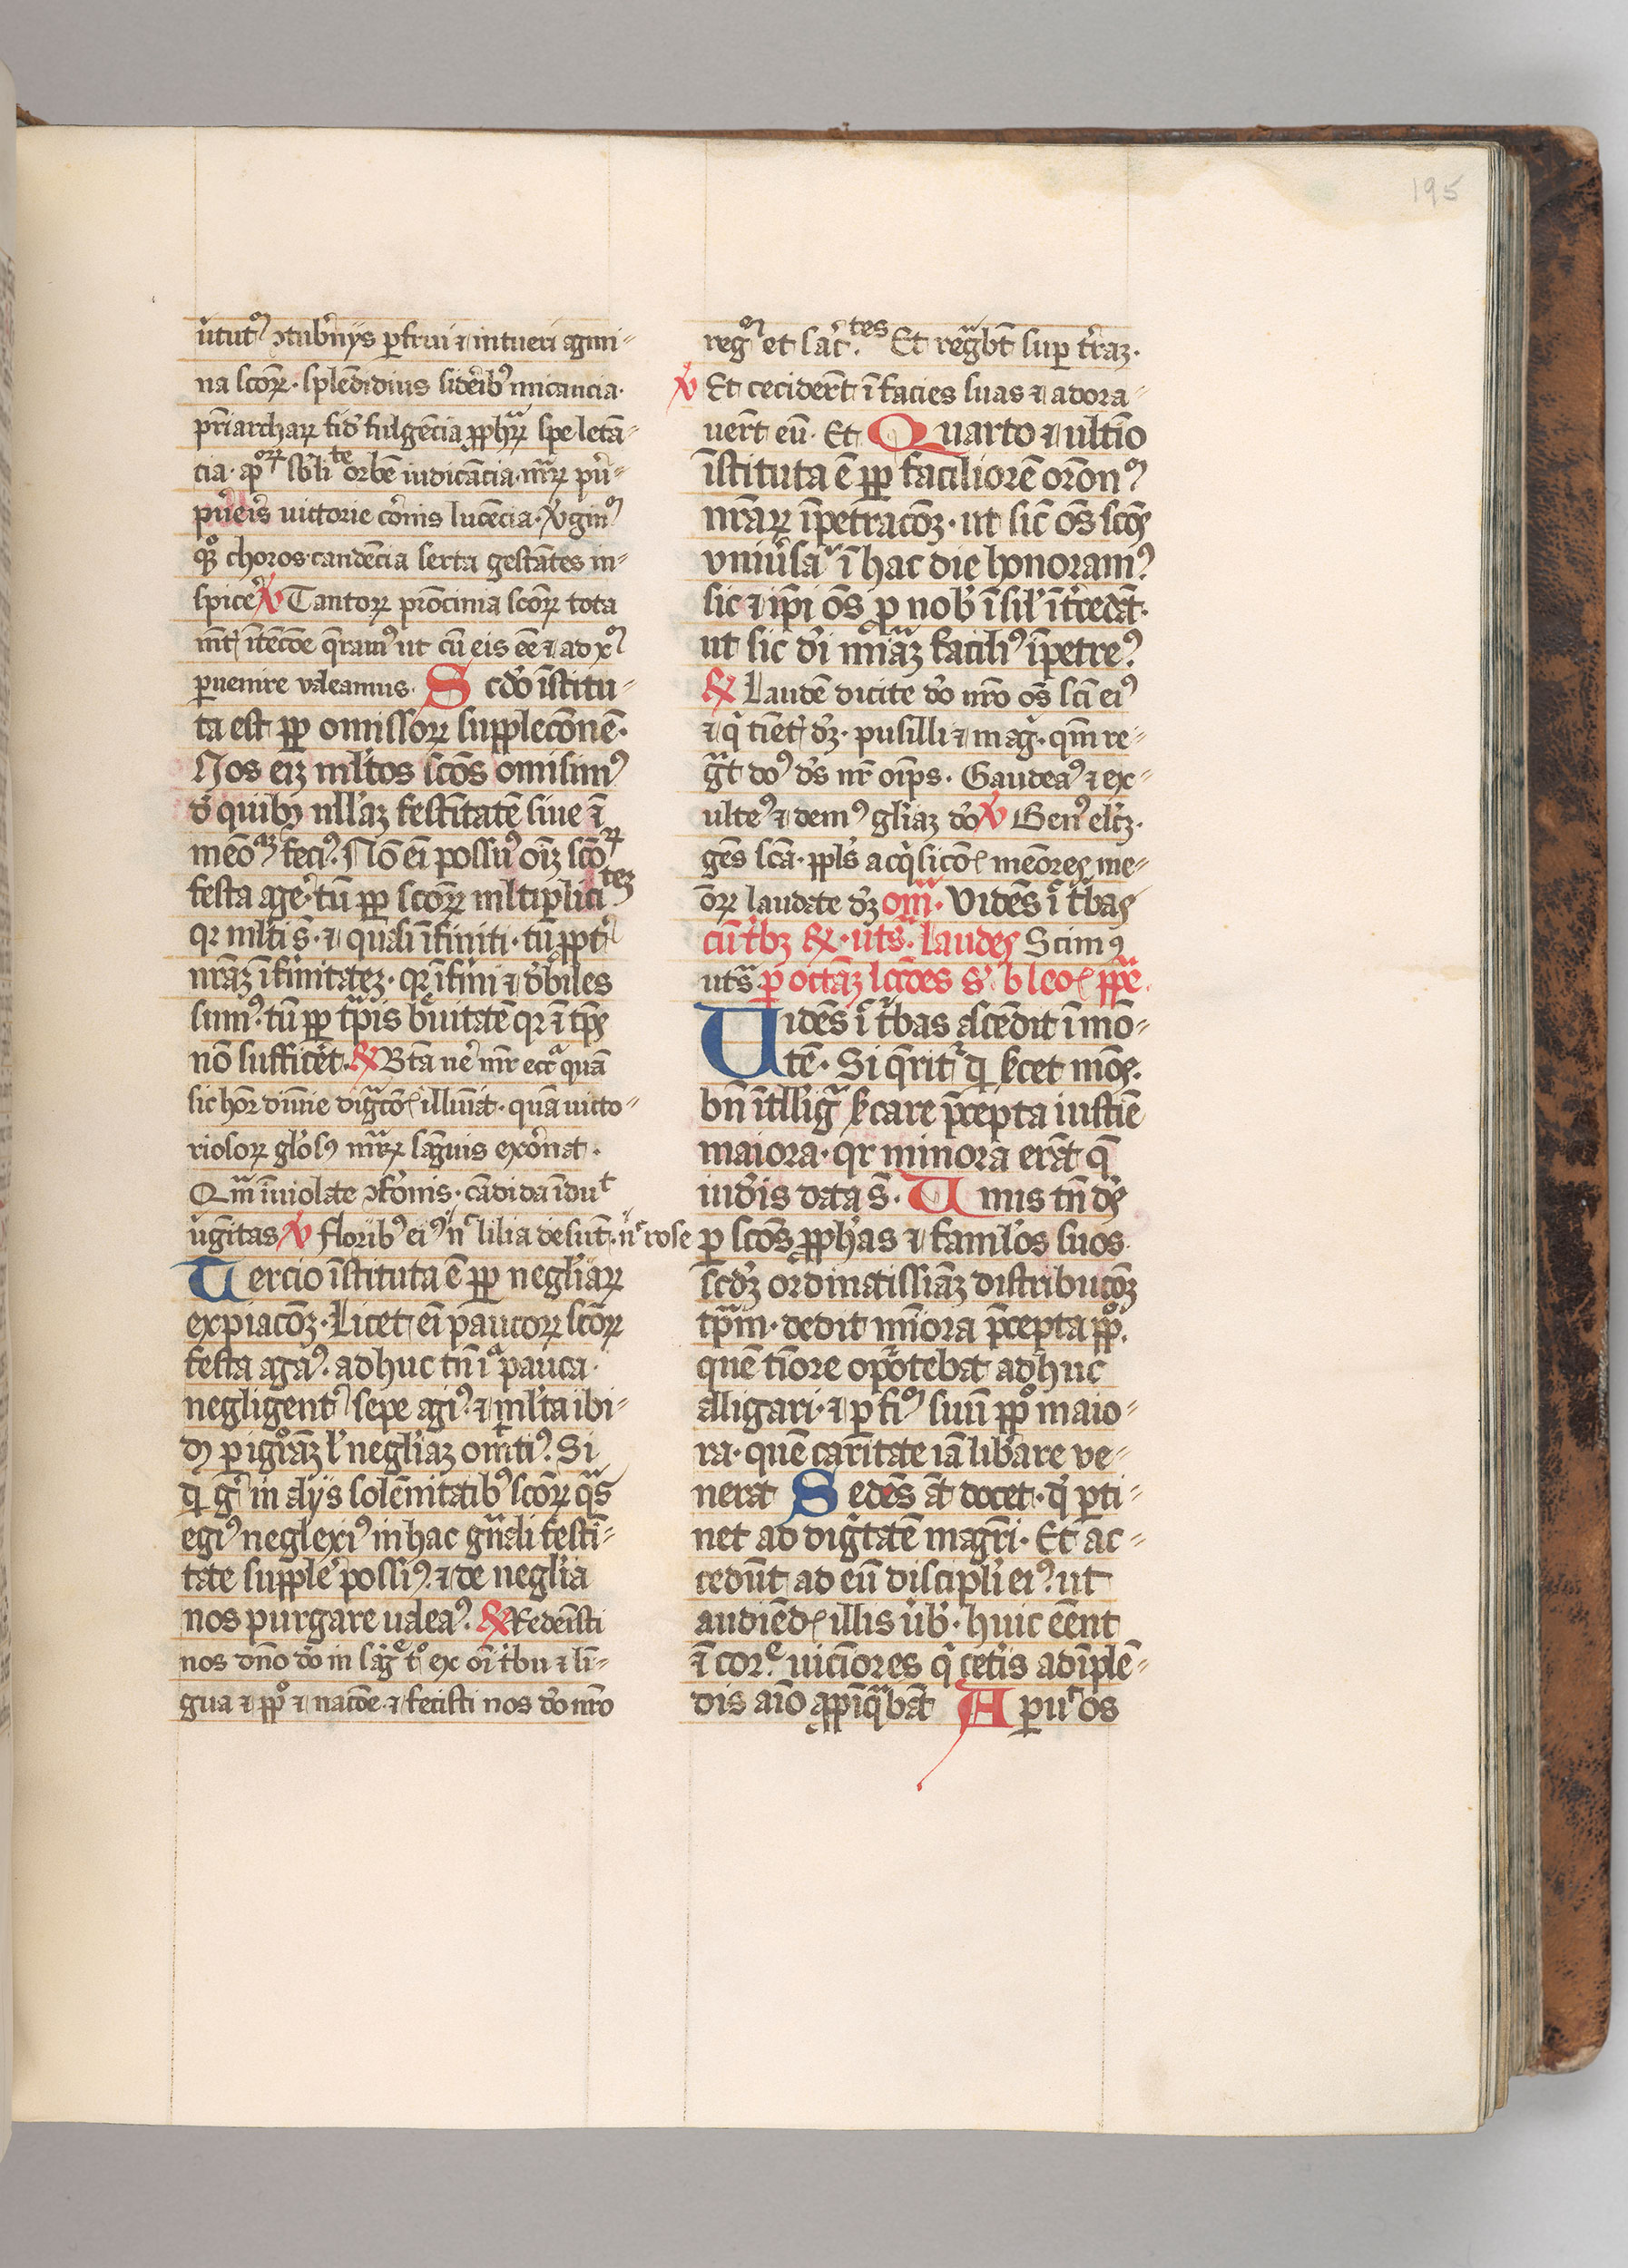 195
v̾tutꝰ ꝯtub̾nijs ꝑfrui ⁊ intueri agmi⸗
na scōꝝ · splēdidius sid̾eibꝰ micancia ·
pr̄iarchaꝝ fid̾ fulgēcia ꝓph̾aꝝ spe letā⸗
cia · apoꝝ sb̾lite orbē iudicācia · mr̄aꝝ pur⸗
pur̾eis victorie cor̾nis lucēcia · v̾ginꝰ
qꝫ choros candēcia serta gestātes in⸗
spic̾e ℣ Tantoꝝ pr̄ocinia scōꝝ tota
mēt̾ ītēcōe q̄ramꝰ ut cū eis eē ⁊ ad xꝰ
ꝑuenire valeamus · Scd̾o īstitu⸗
ta est ꝓp omissoꝝ supplecōnē ·
Nos eīꝫ ml̾tos scōs omisimꝰ
d̾ quibꝫ nll̾aꝫ festītatē siue ī
mēoꝫ feciꝰ · Nō eī possuꝰ oīꝫ scōꝝ
festa ag̾e · tū ꝓp scōꝝ ml̾tipliciteꝫ
qꝛ ml̾ti s̄ · ⁊ quasi īfiniti · tū ꝓpt̾
nr̄aꝫ īfirmitateꝫ · qꝛ īfirmi ⁊ d̾biles
sumꝰ · tū ꝓp tp̄is b̾uitatē qꝛ ī tp̄s
nō sufficēt · ℟ Bt̄a ve̾ mr̄ ecca quā
sic honor diuīe dig̾cōs illuīat · quā victo⸗
riosoꝝ gl̾osꝰ mr̄aꝝ sāguis exornat ·
Qua īuiolate ꝯf̾onis · cādida īdut
v̾gitas ℣ floribꝰ eiꝰ nc lilia desūt · nc rose
Tercio īstituta ē ꝓp negl̾iaꝝ
expiacōꝫ · Licet eī paucoꝝ scōꝝ
festa agaꝰ · adhuc tn̄ ī pauca ·
negligent̾ sepe agiꝰ · ⁊ ml̾ta ibi⸗
dꝫ ꝑ igr̄aꝫ l̾ negl̾iaꝫ omittiꝰ · Si
qͥ g̾ in alijs solēnitatibꝰ scōꝝ qͣs
egiꝰ neglexiꝰ in hac gn̄ali festi⸗
tate supple̾ possiꝰ · ⁊ de negl̾ia
nos purgare valeaꝰ · ℟ Redemisti
nos dn̄e dō in sāg tͦ ex oī t̾bu ⁊ li⸗
gua ⁊ ꝓp̄o ⁊ nacōe · ⁊ fecisti nos dō nr̄o
regꝰ et sac̾tes · Et reg̾bt̄ suꝑ tr̄aꝫ ·
℣ Et ceciderūt ī facies suas ⁊ adora⸗
verūt eū · Et Quarto ⁊ ultīo
īstituta ē ꝓp faciliorē oronꝰ
nr̄aꝝ īpetracōꝫ · ut sic̄ ōs scōs
vniu̾sar ī hac die honoramꝰ ·
sic ⁊ ip̄i ōs ꝓ nob̾ īsil̾ ītercedāt ·
ut sic d̾i mīaꝫ faciliꝰ īpetreꝰ ·
℟ Laudē dicite dō nr̄o ōs sc̄i eiꝰ
⁊ qͥ timēt̾ dꝫ · pusilli ⁊ mag̾ · qm̄ re⸗
gͣt doꝰ d̾s nr̄ oīps · Gaudeaꝰ ⁊ ex⸗
ulteꝰ ⁊ demꝰ gl̾iaꝫ dō ℣ Genꝰ elc̄ꝫ ·
gēs scā · ppl̾s acq̾sicōs memores me⸗
ōrꝝ laudate dꝫ om̄ · Vidēs ī t̾bas
cū t̾bꝫ ℟ · utsͣ · Laudes Scimꝰ
utsͣ ꝑ octāꝫ lc̄ones s̾ · b leos pp̄e ·
Uidēs ī t̾bas ascēdit ī mō⸗
tē · Si q̄rit̾ qͥd sc̄et mōs ·
bn̄ ītllīg̾ sc̄are p̄cepta iusticie
maiora · qꝛ minora erāt q̄
iudeis data s̄ · Unus tn̄ d̾s
ꝑ scōs ꝓph̾as ⁊ famlōs suos ·
scd̾ꝫ ordinatissiāꝫ distribucōꝫ
tp̄m · dedit mīora p̄cepta pp̄o ·
quē timore oportebat adhuc
alligari · ⁊ ꝑ fiꝰ suū pp̄o maio⸗
ra · quē caritate iā lib̾are ve⸗
nerat Sedēs āt docet · qͥ ꝑti⸗
net ad dig̾tatē magr̄i · Et ac⸗
cedūt ad eū discipl̾i eiꝰ · ut
audiēds illis v̾b · huic eēnt
ī core · viciniores q̾ cet̾is adīplē⸗
dis aīo ꝓpīq̾bāt Aperuit os